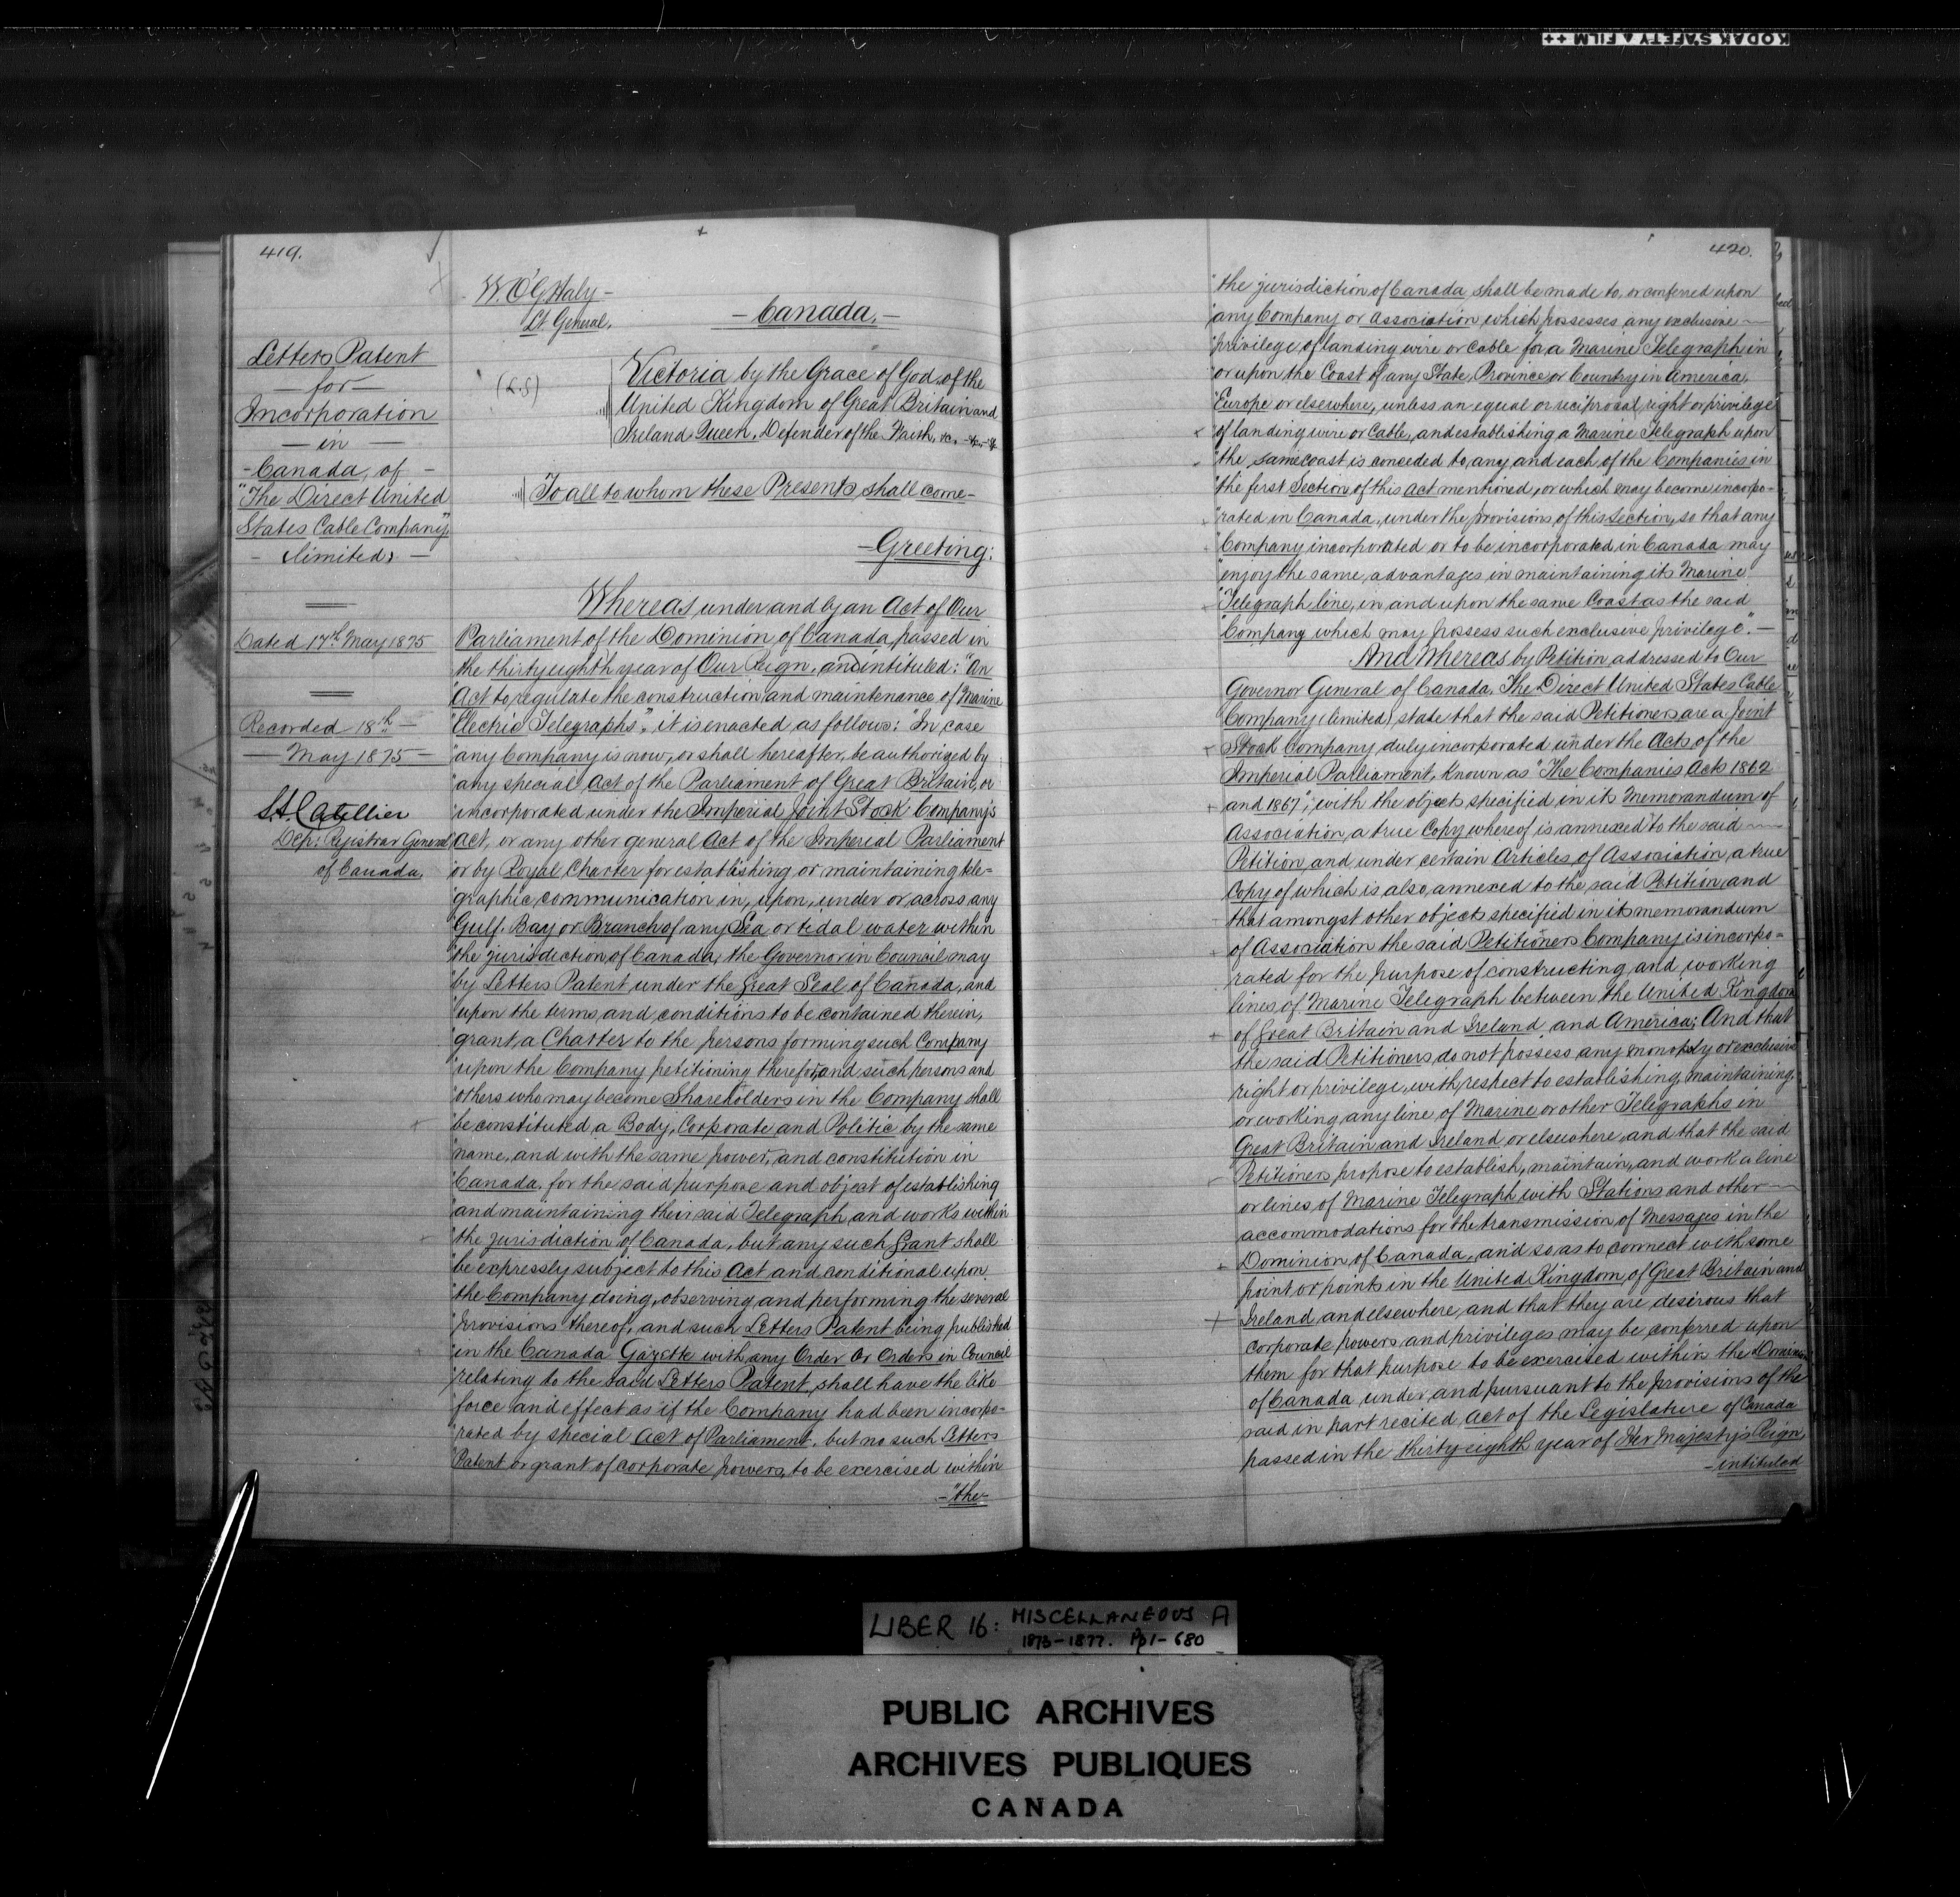 KODAK SAFETY FILM ++
419.
W. O'G Haly-
Lt. General.
- Canada. -
Letters Patent
- for -
Incorporation
- in -
- Canada, of -
"The Direct United
States Cable Company"
- (limited) -
Dated 17th May 1875
Recorded 18th -
- May 1875 -
Dep: Registrar General
of Canada.
(L.S)
Victoria by the Grace of God, of the
United Kingdom of Great Britain and
Ireland Queen, Defender of the Faith, &c. -&c.-&c
To all to whom these Presents shall come-
-Greeting:
Whereas, under and by an Act of Our
Parliament of the Dominion of Canada, passed in
the thirty eighth year of Our Reign, and intituled: "An
"Act to regulate the construction and maintenance of Marine
"Electric Telegraphs", it is enacted as follows: "In case
"any Company is now, or shall hereafter, be authorized by
"any special Act of the Parliament of Great Britain, or
"incorporated under the Imperial Joint Stock Company's
"Act, or any other general Act of the Imperial Parliament
"or by Royal Charter for establishing or maintaining tele=
"graphic communication in, upon, under or across any
"Gulf, Bay or Branch of any Sea or tidal water within
"the jurisdiction of Canada, the Governor in Council may
"by Letters Patent under the Great Seal of Canada, and
"upon the terms and conditions to be contained therein,
"grant a Charter to the persons forming such Company
"upon the Company petitioning therefor, and such persons and
"others who may become Shareholders in the Company shall
"be constituted a Body, Corporate and Politic by the same
"name, and with the same power, and constitution in
"Canada, for the said purpose and object of establishing
"and maintaining their said Telegraph and works within
"the jurisdiction of Canada, but any such Grant shall
"be expressly subject to this Act and conditional upon
"the Company doing, observing and performing the several
"provisions thereof, and such Letters Patent being published
"in the Canada Gazette with any Order or Orders in Council
"relating to the said Letters Patent, shall have the like
"force and effect as if the Company had been incorpo-
"rated by special Act of Parliament, but no such Letters
"Patent or grant of corporate powers, to be exercised within
- "the -
420.
"the jurisdiction of Canada, shall be made to, or conferred upon
"any Company or Association which possesses any exclusive
"privilege of landing wire or Cable for a Marine Telegraph in
"or upon the Coast of any State, Province or Country in America,
"Europe or elsewhere, unless an equal or reciprocal right or privilege
"of landing wire or Cable, and establishing a Marine Telegraph upon
"the same coast is conceded to, any and each of the Companies in
"the first Section of this Act mentioned, or which may become incorpo-
"rated in Canada, under the provisions of this Section, so that any
"Company incorporated or to be incorporated in Canada may
"enjoy the same, advantages in maintaining its Marine
"Telegraph line, in and upon the same Coast as the said
"Company which may possess such exclusive privilege". -
And Whereas by Petition, addressed to Our
Governor General of Canada, The Direct United States Cable
Company (limited) state that the said Petitioners are a Joint
Stock Company, duly incorporated under the Acts of the
Imperial Parliament, known as "The Companies Acts 1862
and 1867", with the objects specified in its Memorandum of
Association, a true Copy whereof is annexed to the said
Petition, and under certain Articles of Association, a true
Copy of which is also, annexed to the said Petition, and
that amongst other objects specified in its memorandum
of Association the said Petitioners Company is incorpo=
rated for the purpose of constructing and working
lines of Marine Telegraph between the United Kingdom
of Great Britain and Ireland, and America; And that
the said Petitioners do not possess any monopoly or exclusive
right or privilege, with respect to establishing, maintaining,
or working any line of Marine or other Telegraphs in
Great Britain and Ireland or elsewhere, and that the said
Petitioners propose to establish, maintain, and work a line
or lines of Marine Telegraph with Stations and other
accommodations for the transmission of Messages in the
Dominion of Canada, and so as to connect with some
point or points in the United Kingdom, of Great Britain and
Ireland and elsewhere, and that they are, desirous that
corporate powers and privileges may be conferred upon
them for that purpose to be exercised within the Dominion
of Canada, under and pursuant to the provisions of the
said in part recited Act of the Legislature of Canada
passed in the thirty-eighth year of Her Majesty's Reign,
- intituled
LIBER 16: MISCELLANEOUS A
1873-1877. Pp 1-680
PUBLIC ARCHIVES
ARCHIVES PUBLIQUES
CANADA